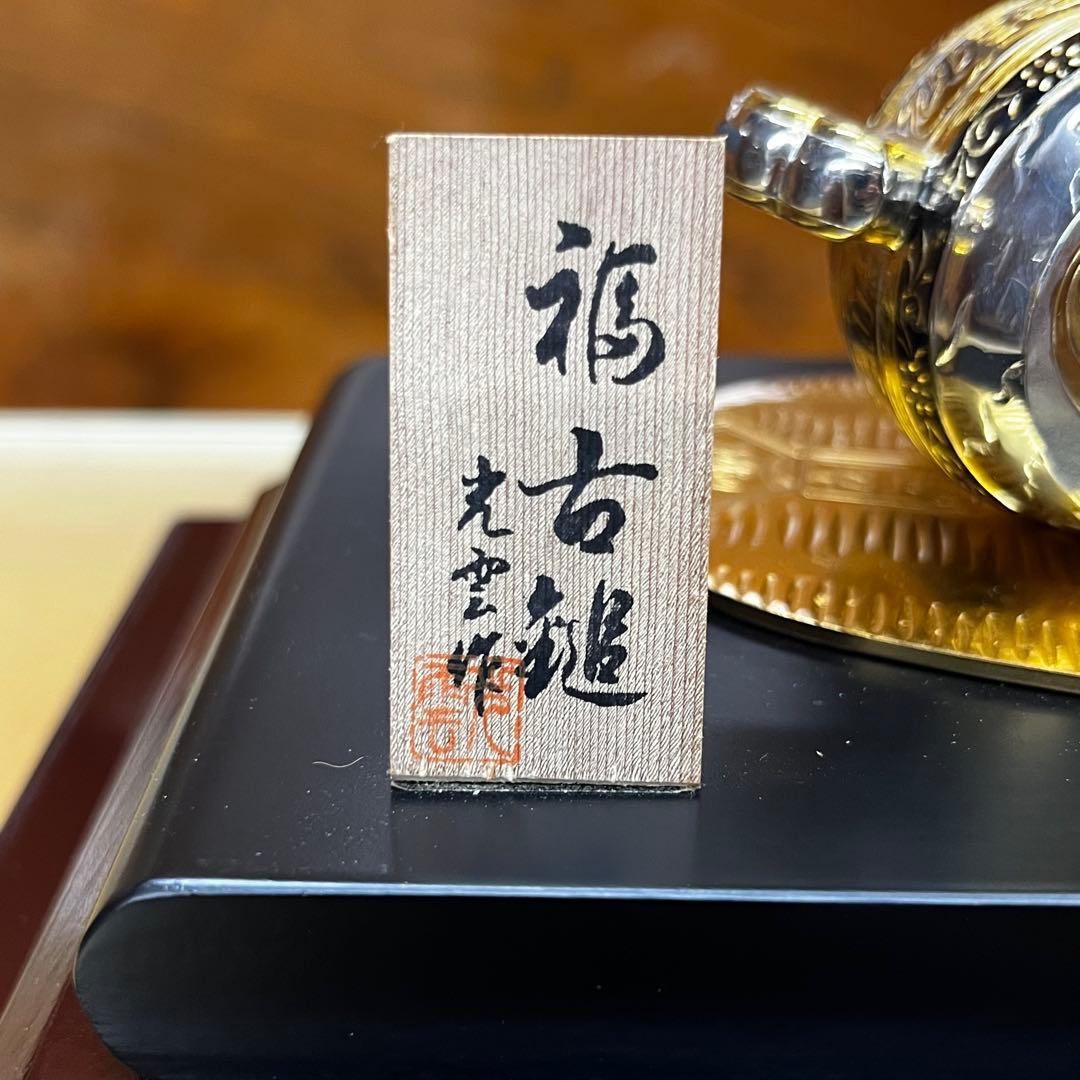 福古鎚
光雲作